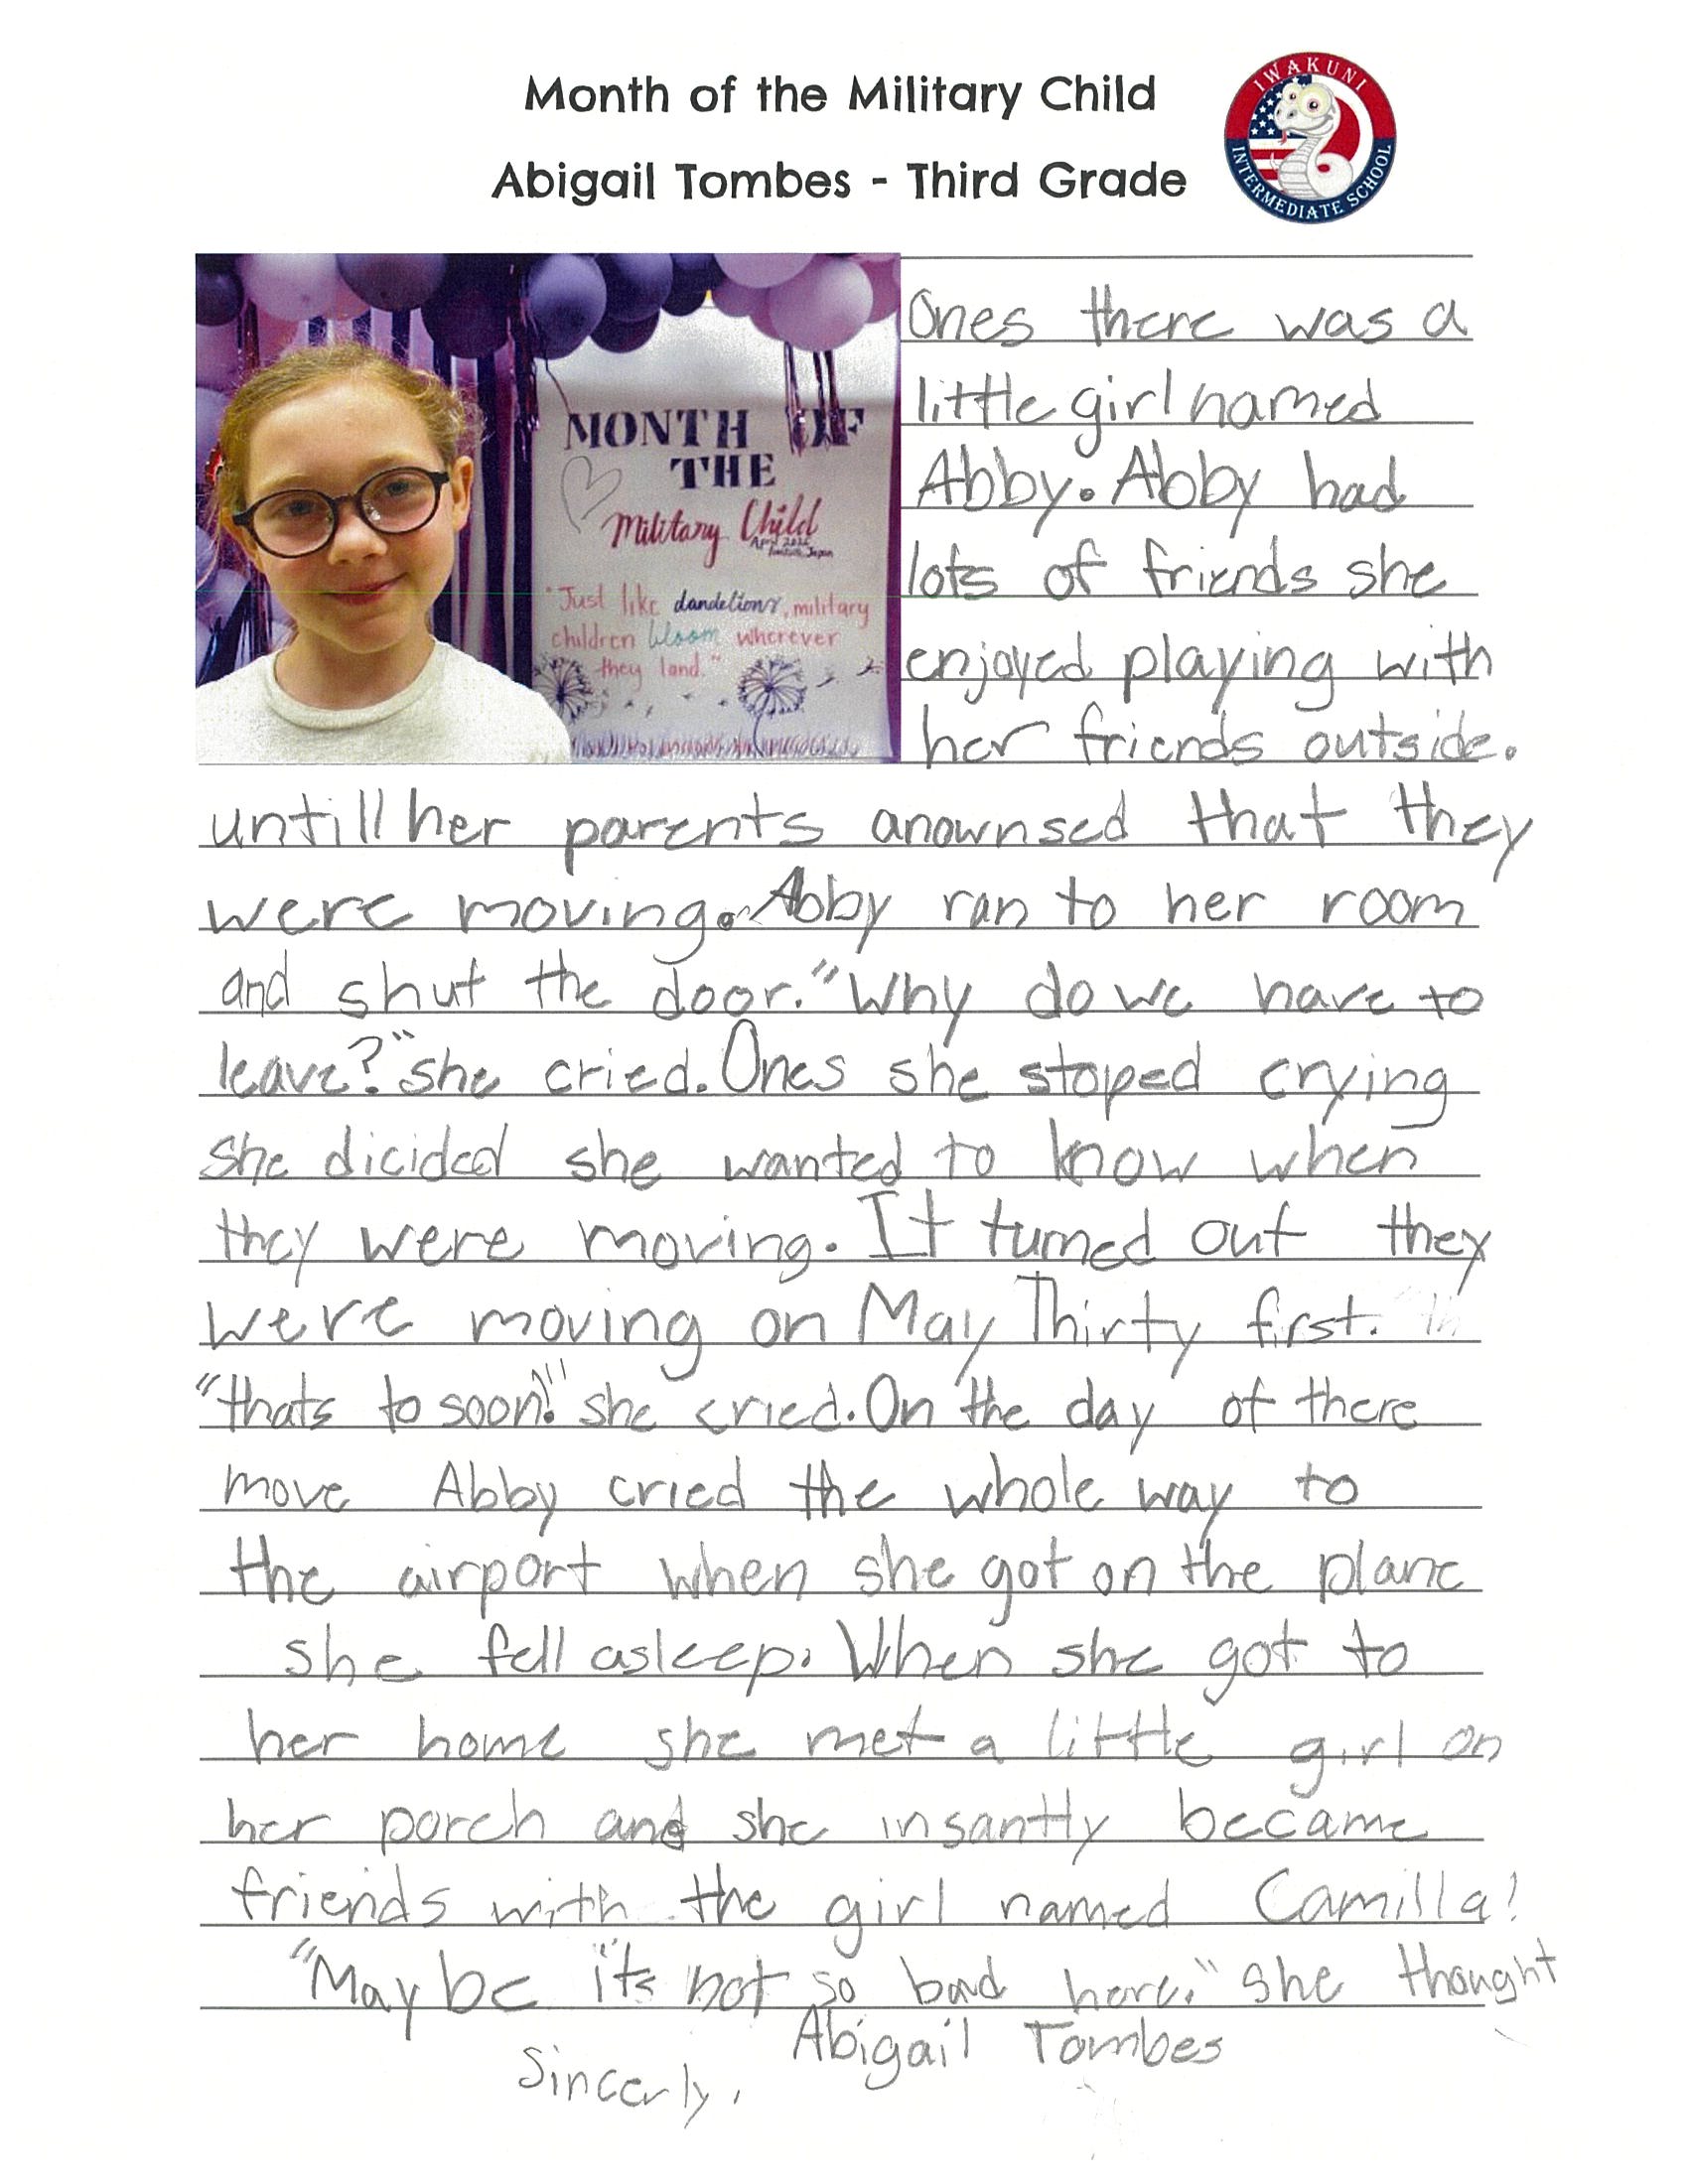 Month of the Military Child
Abigail Tombes - Third Grade
IWAKUNI
INTERMEDIATE SCHOOL
MONTH OF
THE
Military Child
April
Japan
"Just like dandelions, military
children bloom wherever
they land."
Ones there was a
little girl named
Abby. Abby had
lots of friends she
enjoyed playing with
her friends outside.
untill her parents anownsed that they
were moving. Abby ran to her room
and shut the door. "Why do we have to
leave?" she cried. Ones she stoped crying
she dicided she wanted to know when
they were moving. It turned out they
were moving on May Thirty first.
"thats to soon!" she cried. On the day of there
move Abby cried the whole way to
the airport when she got on the plane
she fell asleep. When she got to
her home she met a little girl on
her porch and she insantly became
friends with the girl named Camilla!
"May be it's not so bad here." she thought
Abigail Tombes
Sincerly,